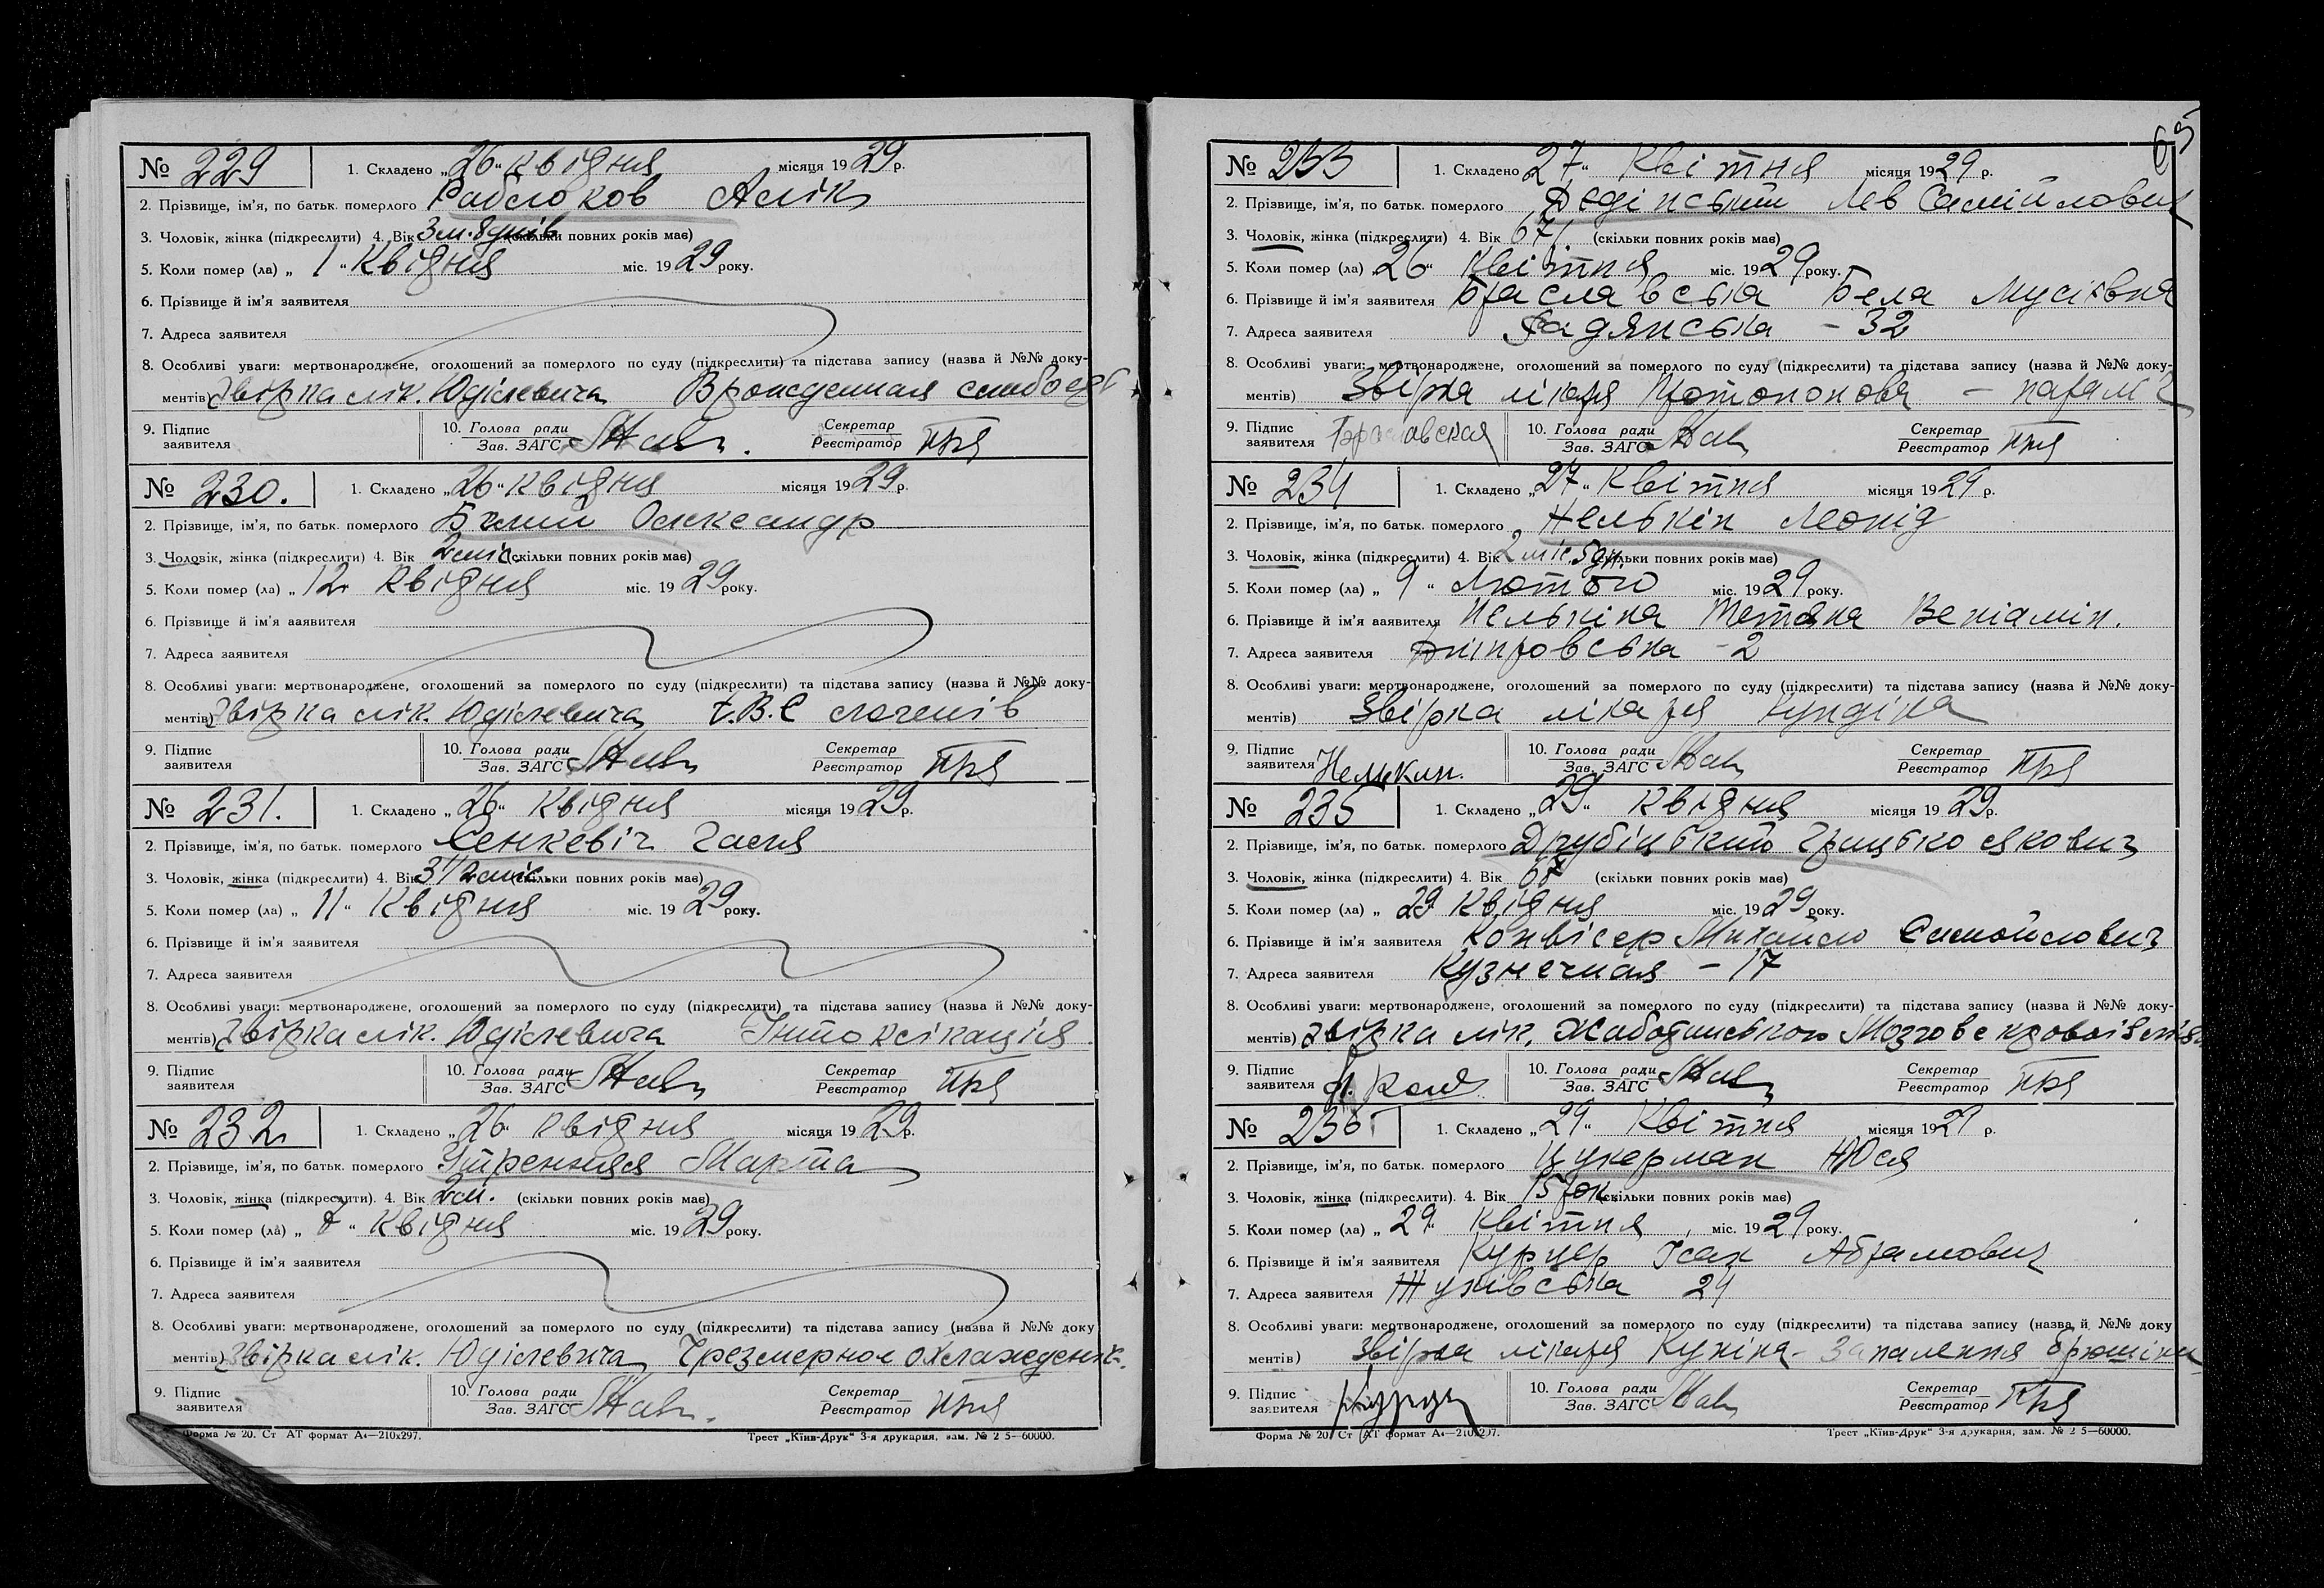 № 229 1. Складено „26“ Квідня місяця 1929 р.
2. Прізвище, ім'я, по батьк. померлого Алік
3. Чоловік, жінка (підкреслити) 4. Вік 3 м. 8 днів (скільки повних років має)
5. Коли помер (ла) „1“ Квідня міс. 1929 року.
6. Прізвище й ім'я заявителя
7. Адреса заявителя
8. Особливі уваги: мертвонароджене, оголошений за померлого по суду (підкреслити) та підстава запису (назва й №№ доку-
ментів) Звірка лік. Юділевича Врожденная слабост
9. Підпис заявителя 10. Голова ради Зав. ЗАГС Секретар Реєстратор
№ 230. 1. Складено „26“ Квідня місяця 1929 р.
2. Прізвище, ім'я, по батьк. померлого Білий Олександр
3. Чоловік, жінка (підкреслити) 4. Вік 2 міс. (скільки повних років має)
5. Коли помер (ла) „12 Квідня міс. 1929 року.
6. Прізвище й ім'я заявителя
7. Адреса заявителя
8. Особливі уваги: мертвонароджене, оголошений за померлого по суду (підкреслити) та підстава запису (назва й №№ доку-
ментів) Звірка лік. Юділевича легенів
9. Підпис заявителя 10. Голова ради Зав. ЗАГС Секретар Реєстратор
№ 231. 1. Складено „26“ Квідня місяця 1929 р.
2. Прізвище, ім'я, по батьк. померлого Сенкевіч Гасня
3. Чоловік, жінка (підкреслити) 4. Вік 3 1/2 міс. (скільки повних років має)
5. Коли помер (ла) „11“ Квідня міс. 1929 року.
6. Прізвище й ім'я заявителя
7. Адреса заявителя
8. Особливі уваги: мертвонароджене, оголошений за померлого по суду (підкреслити) та підстава запису (назва й №№ доку-
ментів) Звірка лік. Юділевича Інтоксікація
9. Підпис заявителя 10. Голова ради Зав. ЗАГС Секретар Реєстратор
№ 232 1. Складено „26“ Квідня місяця 1929 р.
2. Прізвище, ім'я, по батьк. померлого Утренняя Марта
3. Чоловік, жінка (підкреслити). 4. Вік 2 м. (скільки повних років має)
5. Коли помер (ла) „7“ Квідня міс. 1929 року.
6. Прізвище й ім'я заявителя
7. Адреса заявителя
8. Особливі уваги: мертвонароджене, оголошений за померлого по суду (підкреслити) та підстава запису (назва й №№ доку
ментів) Звірка лік. Юділевича Чрезмерное охлажденіе.
9. Підпис заявителя 10. Голова ради Зав. ЗАГС Секретар Реєстратор
Форма № 20. Ст АТ формат А4—210x297. Трест „Київ-Друк“ 3-я друкарня, зам. № 2 5—60000.
65
№ 233 1. Складено 27“ Квітня місяця 1929 р.
2. Прізвище, ім'я, по батьк. померлого Дедінський Лев Самійлович
3. Чоловік, жінка (підкреслити) 4. Вік 67 (скільки повних років має)
5. Коли помер (ла) 26“ Квітня міс. 1929 року.
6. Прізвище й ім'я заявителя Браславська Бела Мусіївна
7. Адреса заявителя Радянська - 32
8. Особливі уваги: мертвонароджене, оголошений за померлого по суду (підкреслити) та підстава запису (назва й №№ доку-
ментів) Звірка лікаря Протопопова - параліч
9. Підпис заявителя Браславская 10. Голова ради Зав. ЗАГС Секретар Реєстратор
№ 234 1. Складено „27“ Квітня місяця 1929 р.
2. Прізвище, ім'я, по батьк. померлого Нелькін Леонід
3. Чоловік, жінка (підкреслити) 4. Вік 2 міс. 5 дн. (скільки повних років має)
5. Коли помер (ла) „9“ Лютого міс. 1929 року.
6. Прізвище й ім'я заявителя Нелькіна Тетяна Веніамін.
7. Адреса заявителя Дніпровська - 2
8. Особливі уваги: мертвонароджене, оголошений за померлого по суду (підкреслити) та підстава запису (назва й №№ доку-
ментів) Звірка лікаря
9. Підпис заявителя Нелькин. 10. Голова ради Зав. ЗАГС Секретар Реєстратор
№ 235 1. Складено „29“ Квідня місяця 1929 р.
2. Прізвище, ім'я, по батьк. померлого Друбіцький Грицько Якович
3. Чоловік, жінка (підкреслити) 4. Вік 68 (скільки повних років має)
5. Коли помер (ла) „29 Квідня міс. 1929 року.
6. Прізвище й ім'я заявителя Конвісер Михайло Самойлович
7. Адреса заявителя Кузнечная - 17
8. Особливі уваги: мертвонароджене, оголошений за померлого по суду (підкреслити) та підстава запису (назва й №№ доку-
ментів) Звірка лік. Жаботинського Мозгове
9. Підпис заявителя 10. Голова ради Зав. ЗАГС Секретар Реєстратор
№ 236 1. Складено „29“ Квітня місяця 1929 р.
2. Прізвище, ім'я, по батьк. померлого Цукерман Нюся
3. Чоловік, жінка (підкреслити). 4. Вік 15 рок. (скільки повних років має)
5. Коли помер (ла) „29“ Квітня міс. 1929 року.
6. Прізвище й ім'я заявителя Курцер Ісак Абрамович
7. Адреса заявителя Жуківська 24
8. Особливі уваги: мертвонароджене, оголошений за померлого по суду (підкреслити) та підстава запису (назва й №№ доку
ментів) Звірка лікаря Куніна - Запалення брюшіни
9. Підпис заявителя 10. Голова ради Зав. ЗАГС Секретар Реєстратор
Форма № 20. Ст АТ формат А4—210x297. Трест „Київ-Друк“ 3-я друкарня, зам. № 2 5—60000.